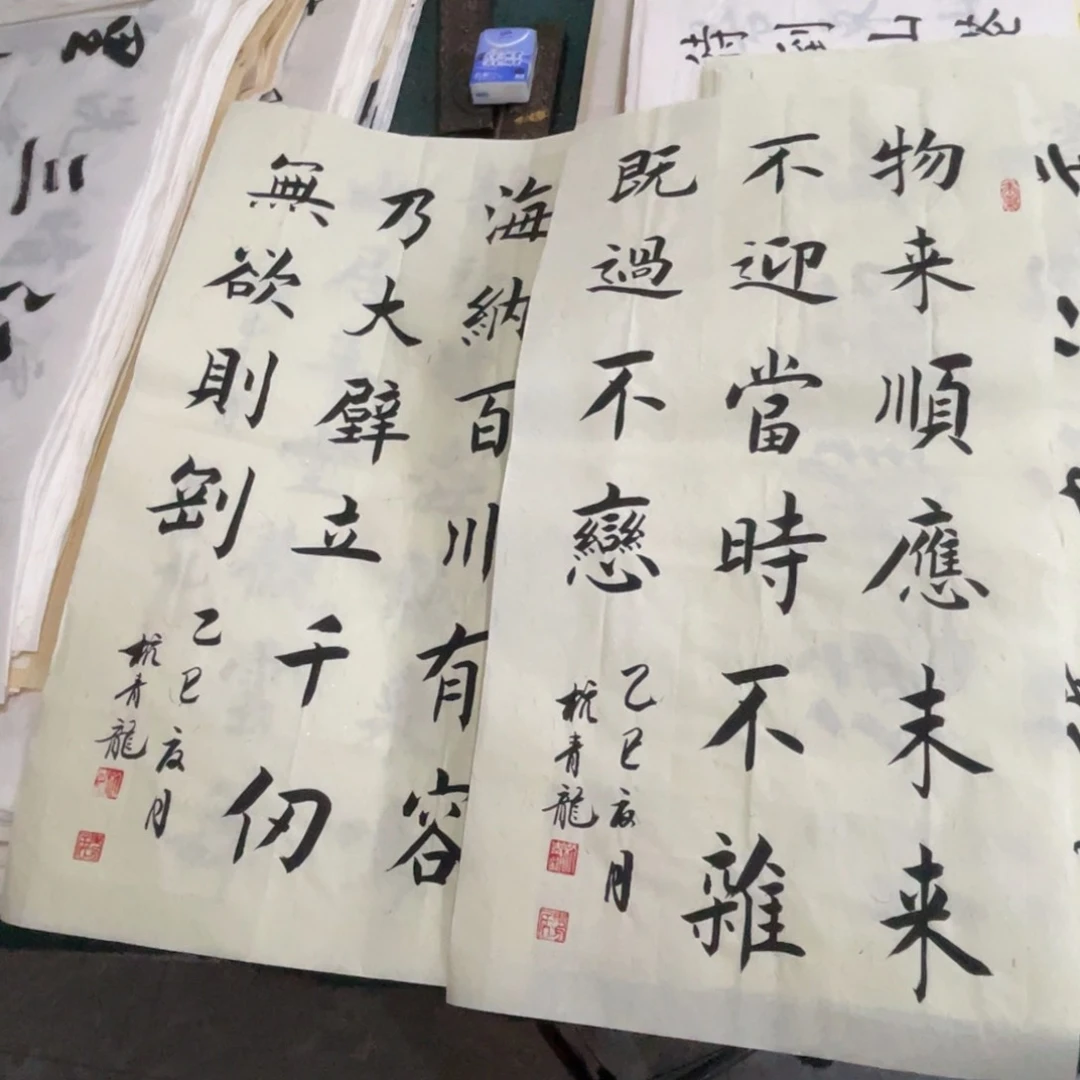 物来順應末来
不迎當時不雜
既過不戀
乙巳夏月
杭青龍
海納百川有容
乃大壁立千仞
無欲則剛
乙巳夏月
杭青龍